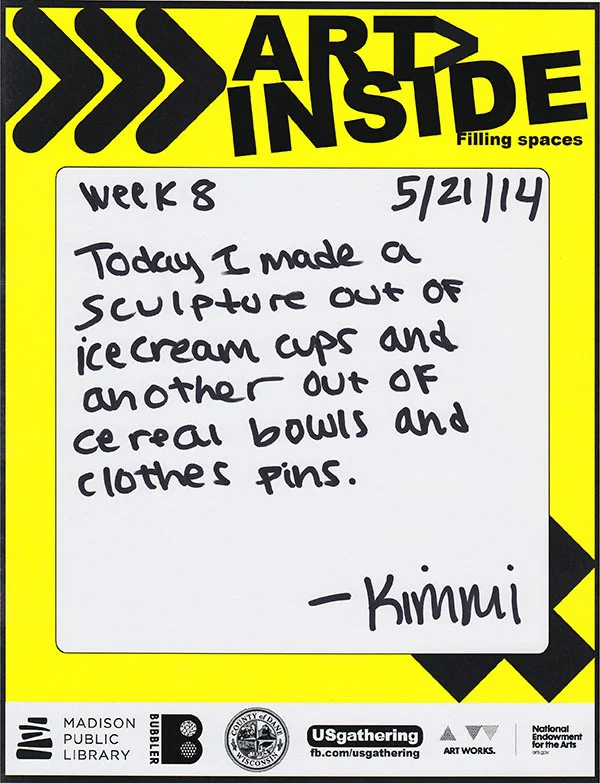 ART>
INSIDE
Filling spaces
Week 8 5/21/14
Today I made a
sculpture out of
icecream cups and
another out of
cereal bowls and
clothes pins.
- Kimmi
MADISON
PUBLIC
LIBRARY
BUBBLER
B
COUNTY of DANE
WISCONSIN
USgathering
fb.com/usgathering
ART WORKS.
National
Endowment
for the Arts
arts.gov